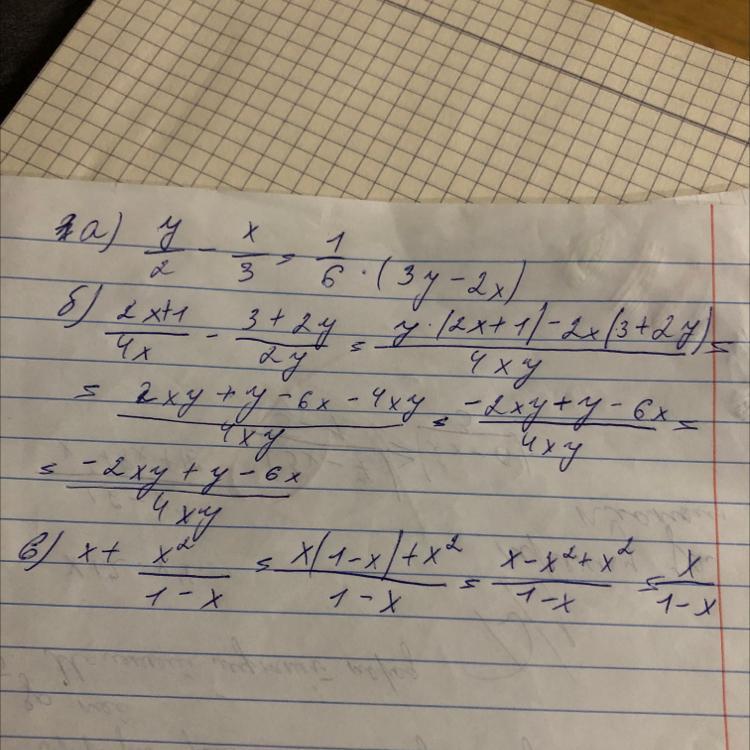 а) y/2 - x/3 = 1/6 · (3y - 2x)
б) (2x+1)/(4x) - (3+2y)/(2y) = (y·(2x+1) - 2x(3+2y))/(4xy) =
= (2xy + y - 6x - 4xy)/(4xy) = (-2xy + y - 6x)/(4xy) =
= (-2xy + y - 6x)/(4xy)
в) x + x²/(1-x) = (x(1-x) + x²)/(1-x) = (x - x² + x²)/(1-x) = x/(1-x)